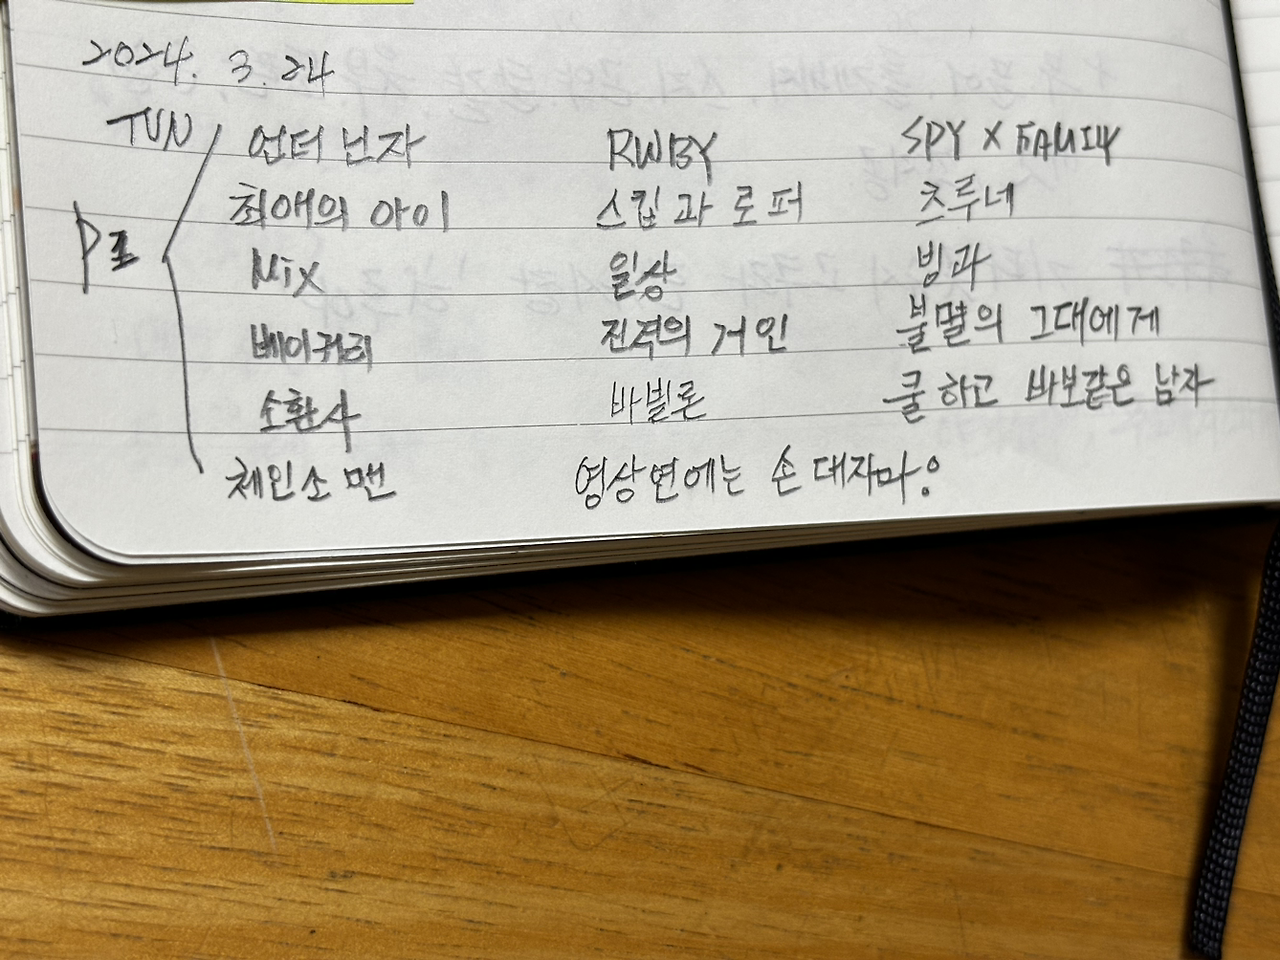 2024. 3. 24
TVN 언더 닌자 RWBY SPY X FAMILY
최애의 아이 스킵과 로퍼 츠루네
Mix 일상 빙과
진격의 거인 불멸의 그대에게
소환사 바빌론 쿨하고 바보같은 남자
체인소 맨 영상연에는 손 대지마!